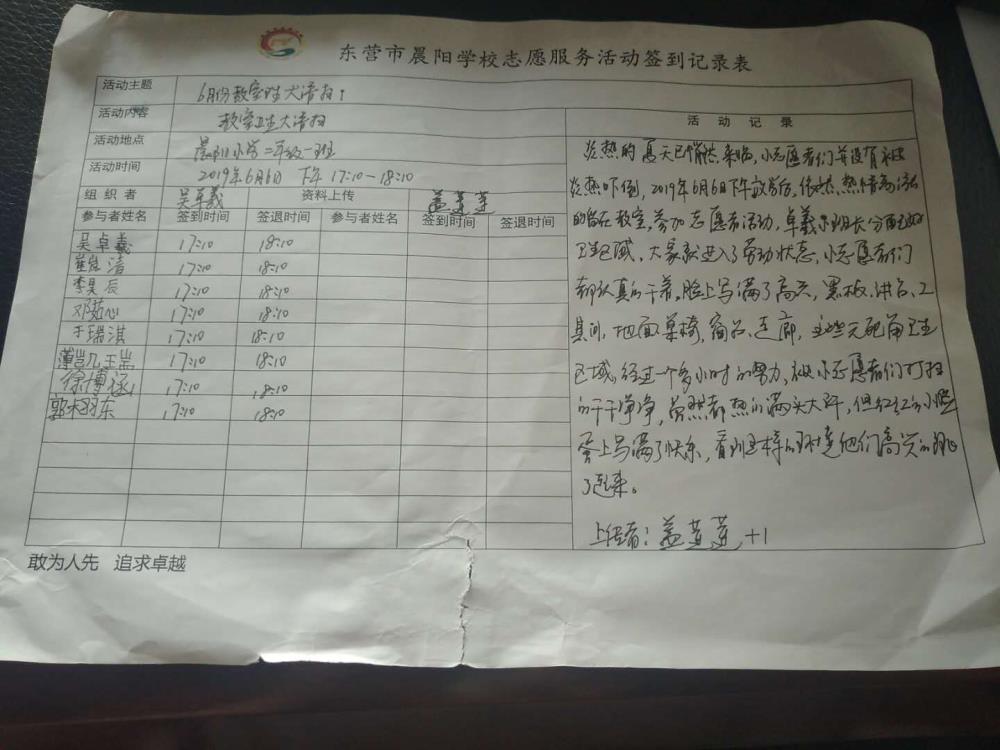 东营市晨阳学校志愿服务活动签到记录表
活动主题 6月份教室卫生大清扫
活动内容 教室卫生大清扫
活动地点 晨阳小学二年级一班
活动时间 2019年6月6日 下午17:10-18:10
组织者 吴卓羲 资料上传 盖
参与者姓名 签到时间 签退时间 参与者姓名 签到时间 签退时间
吴卓羲 17:10 18:10
崔 清 17:10 18:10
李昊辰 17:10 18:10
邓茹心 17:10 18:10
于瑞淇 17:10 18:10
薄凯瑞 17:10 18:10
徐博涵 17:10 18:10
郭栩东 17:10 18:10
活动记录
炎热的夏天已悄然来临,小志愿者们并没有被
炎热吓倒,2019年6月6日下午放学后,依然热情高涨
的留在教室,参加志愿者活动,卓羲小班长分配好
卫生区域,大家就进入了劳动状态,小志愿者们
都认真的干着,脸上写满了高兴,黑板、讲台、工
具间、地面桌椅、窗台、走廊,这些无死角卫生
区域,经过一个多小时的努力,被小志愿者们打扫
的干干净净,虽然都热的满头大汗,但红红的小脸
蛋上写满了快乐,看到这样的环境他们高兴的跳
了起来。
上传者:盖 +1
敢为人先 追求卓越